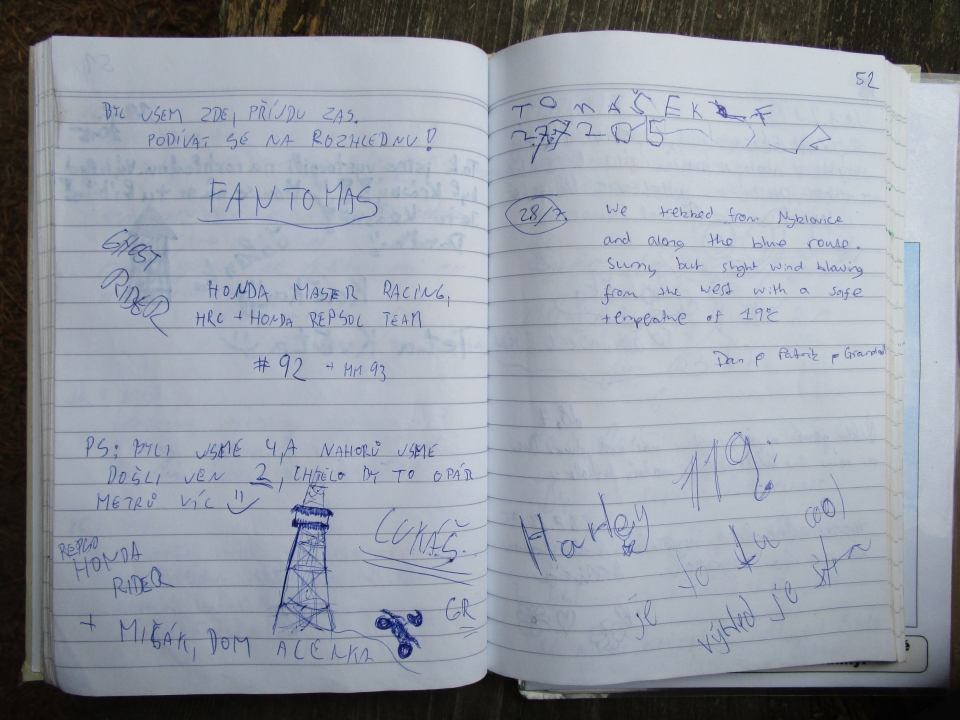 BYL JSEM ZDE, PŘIJDU ZAS.
PODÍVAT SE NA ROZHLEDNU!
FANTOMAS
GHOST
RIDER
HONDA MASTER RACING,
HRC + HONDA REPSOL TEAM
#92 + MM 93
PS: BYLI JSME 4, A NAHORŮ JSME
DOŠLI JEN 2, CHTĚLO BY TO OPÁR
METRŮ VÍC
LUKÁŠ.
REPSOL
HONDA
RIDER
GR
+ MIŠÁK, DOM ALENKA
52
TOMÁŠEK
27.7 205
28/7
We trekked from
and along the blue route.
Sunny but slight wind blowing
from the west with a safe
tempeature of 19c
Dan + Patrik + Grandad
Harley 119:
je to tu cool
výhled je